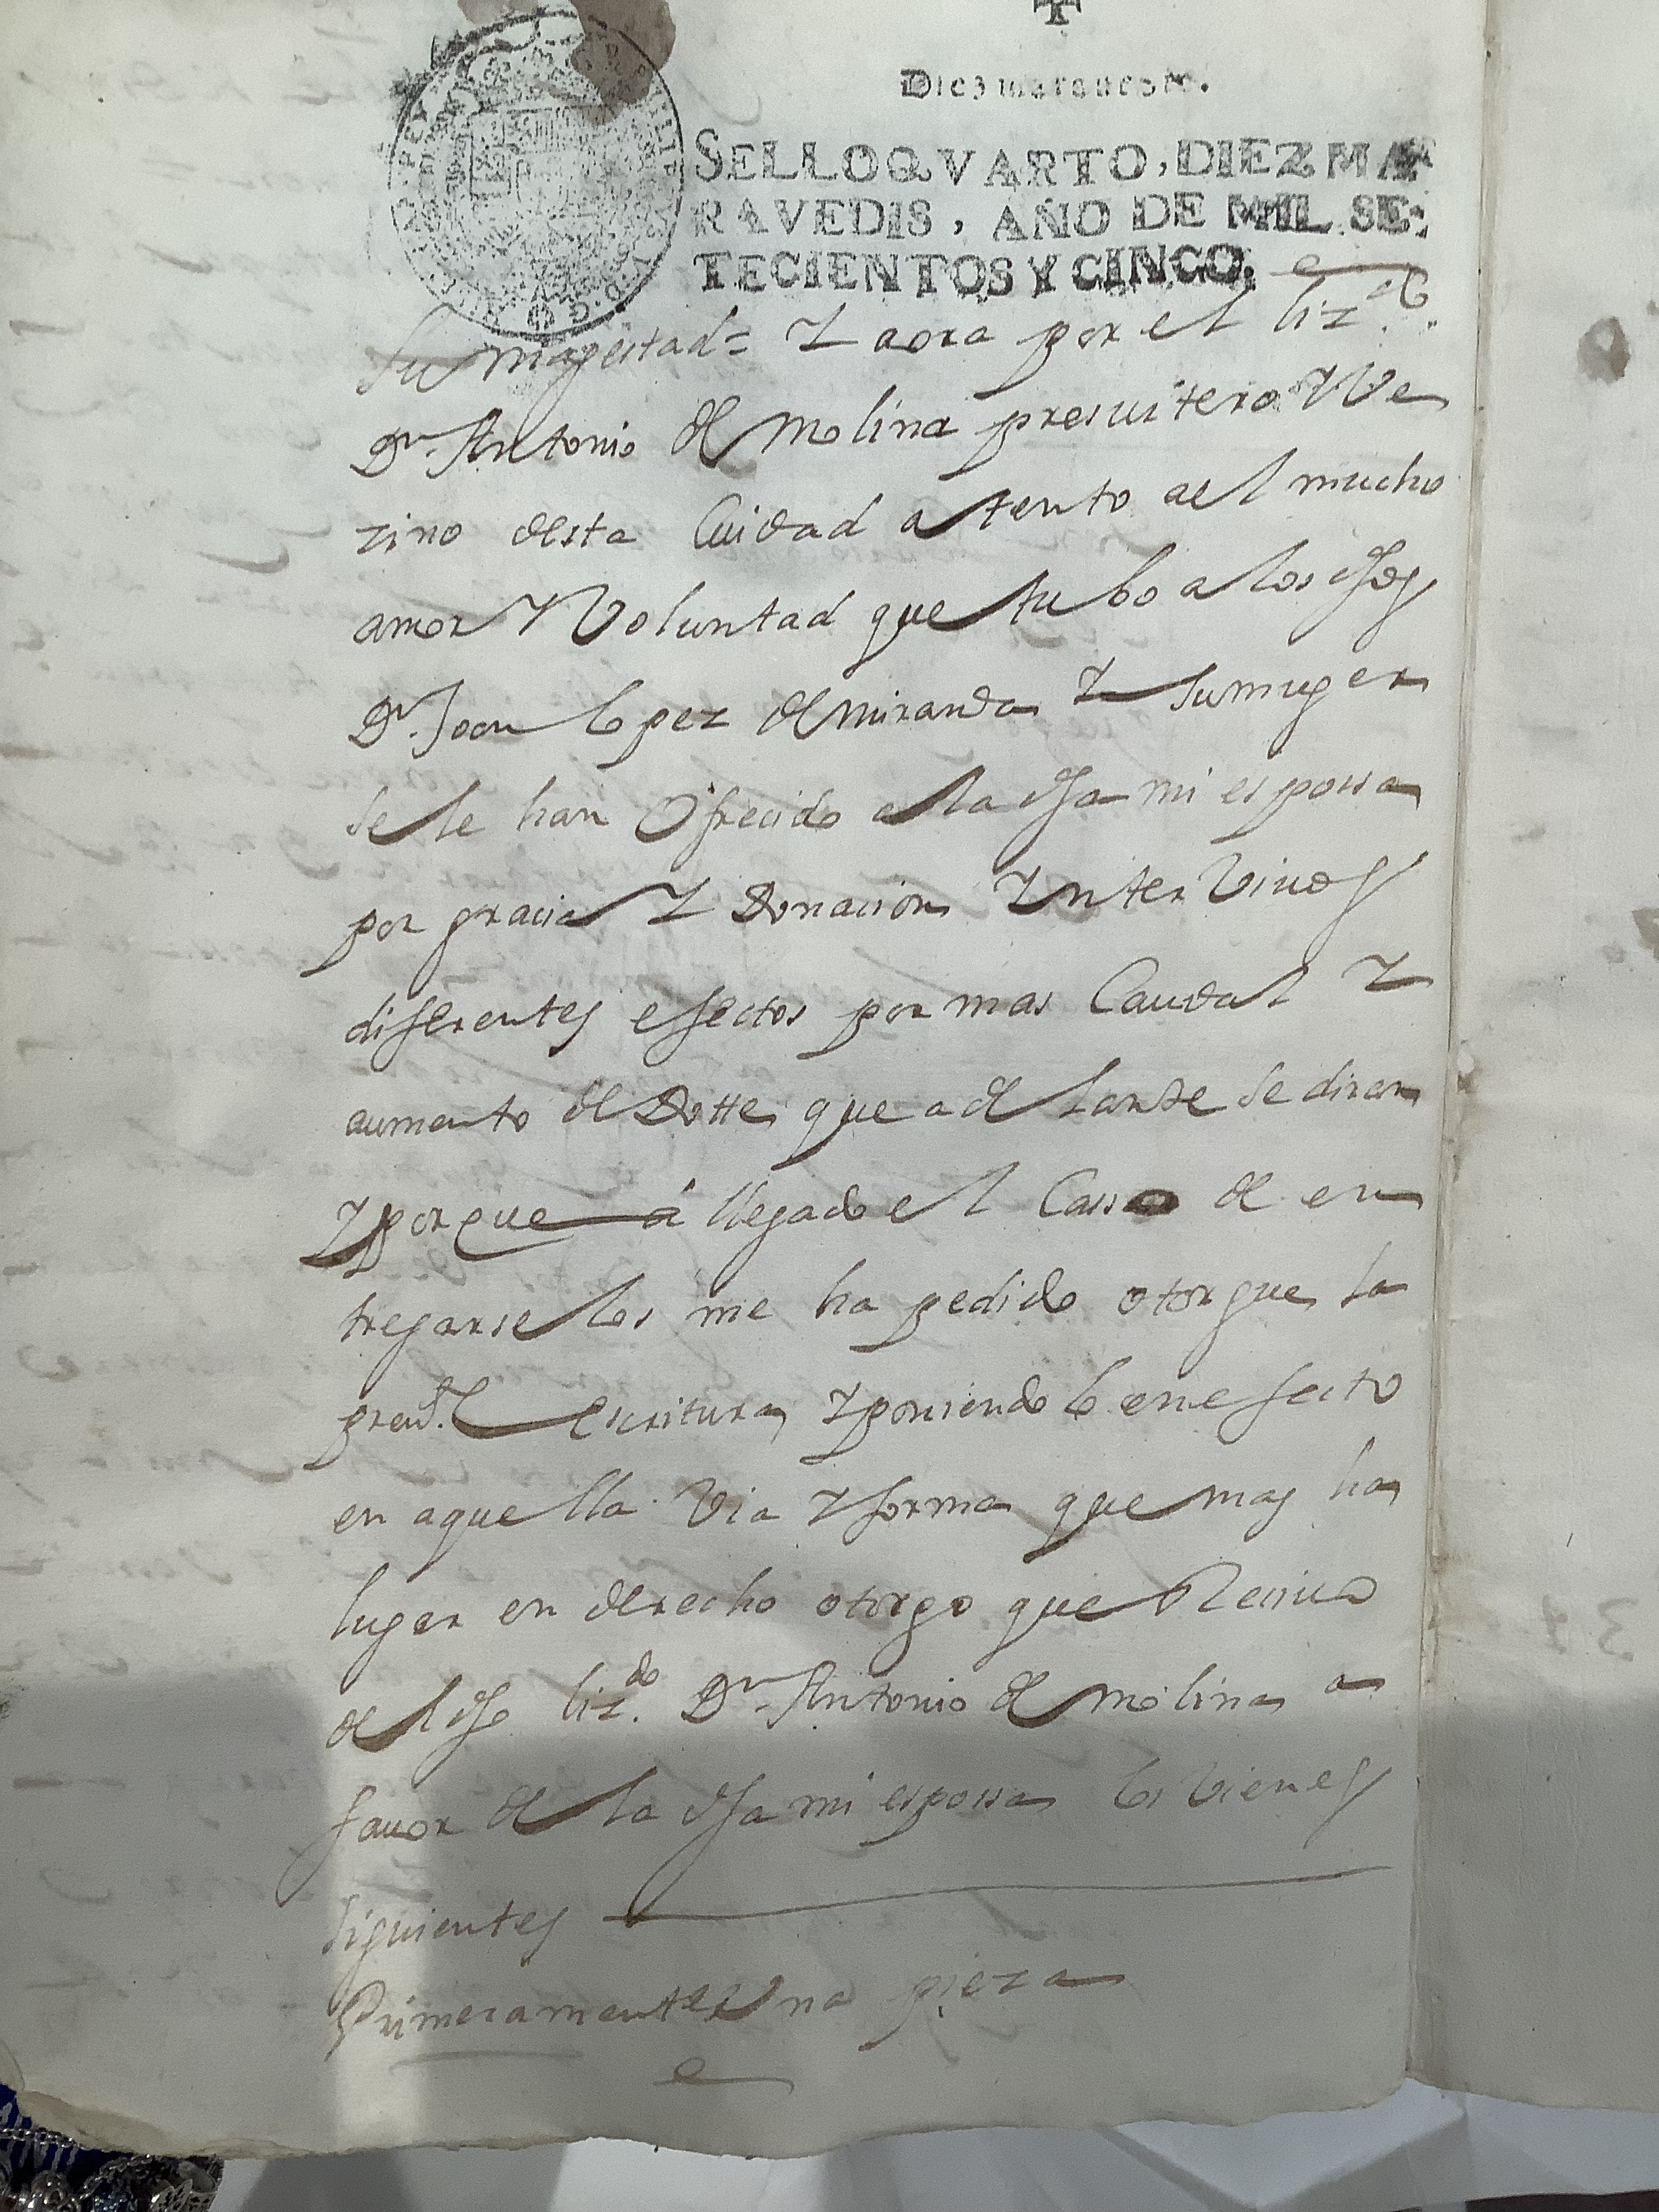 Diez maravedis.
SELLO QVARTO, DIEZ MA
RAVEDIS, AÑO DE MIL SE-
TECIENTOS Y CINCO.
su magestad = Y aora por el liz.do
Dn. Antonio de Molina presuitero Y Ve
zino desta Ciudad atento a el mucho
amor Y Voluntad que tubo a los dhos
Dn. Joan lopez de miranda Y su muger
se le han Ofrecido a la dha mi espossa
por gracia Y Donacion Ynter Vivos
diferentes efectos por mas Caudal Y
aumento de Dotte que adelante se diran
Y porque á llegado el Casso de en
tregarse los me ha pedido otorgue la
preste. escritura Y poniendolo en efecto
en aquella Via Y forma que mas ha
lugar en derecho otorgo que Reciuo
del dho liz.do Dn. Antonio de Molina a
favor de la dha mi espossa los Vienes
siguientes
Primeramente Una pieza